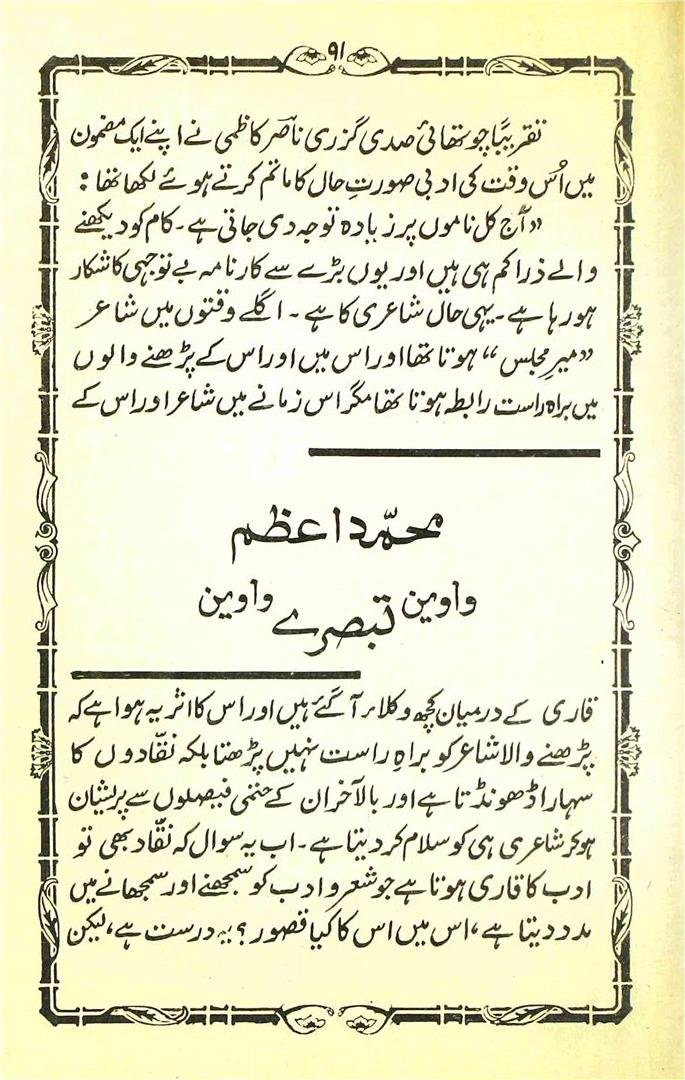 ۹۱
تقریباً چوتھائی صدی گزری ناصر کاظمی نے اپنے ایک مضمون
میں اُس وقت کی ادبی صورتِ حال کا ماتم کرتے ہوئے لکھا تھا :
”آج کل ناموں پر زیادہ توجہ دی جاتی ہے۔ کام کو دیکھنے
والے ذرا کم ہی ہیں اور یوں بڑے سے کارنامہ بے توجہی کا شکار
ہو رہا ہے۔ یہی حال شاعری کا ہے۔ اگلے وقتوں میں شاعر
”میرِ مجلس“ ہوتا تھا اور اس میں اور اس کے پڑھنے والوں
میں براہ راست رابطہ ہوتا تھا مگر اس زمانے میں شاعر اور اس کے
محمّد اعظم
واوین تبصرے واوین
قاری کے درمیان کچھ وکلاء آ گئے ہیں اور اس کا اثر یہ ہوا ہے کہ
پڑھنے والا شاعر کو براہِ راست نہیں پڑھتا بلکہ نقّادوں کا
سہارا ڈھونڈتا ہے اور بالآخر ان کے حتمی فیصلوں سے پریشان
ہو کر شاعری ہی کو سلام کر دیتا ہے۔ اب یہ سوال کہ نقّاد بھی تو
ادب کا قاری ہوتا ہے جو شعر و ادب کو سمجھنے اور سمجھانے میں
مدد دیتا ہے، اس میں اس کا کیا قصور؟ یہ درست ہے، لیکن